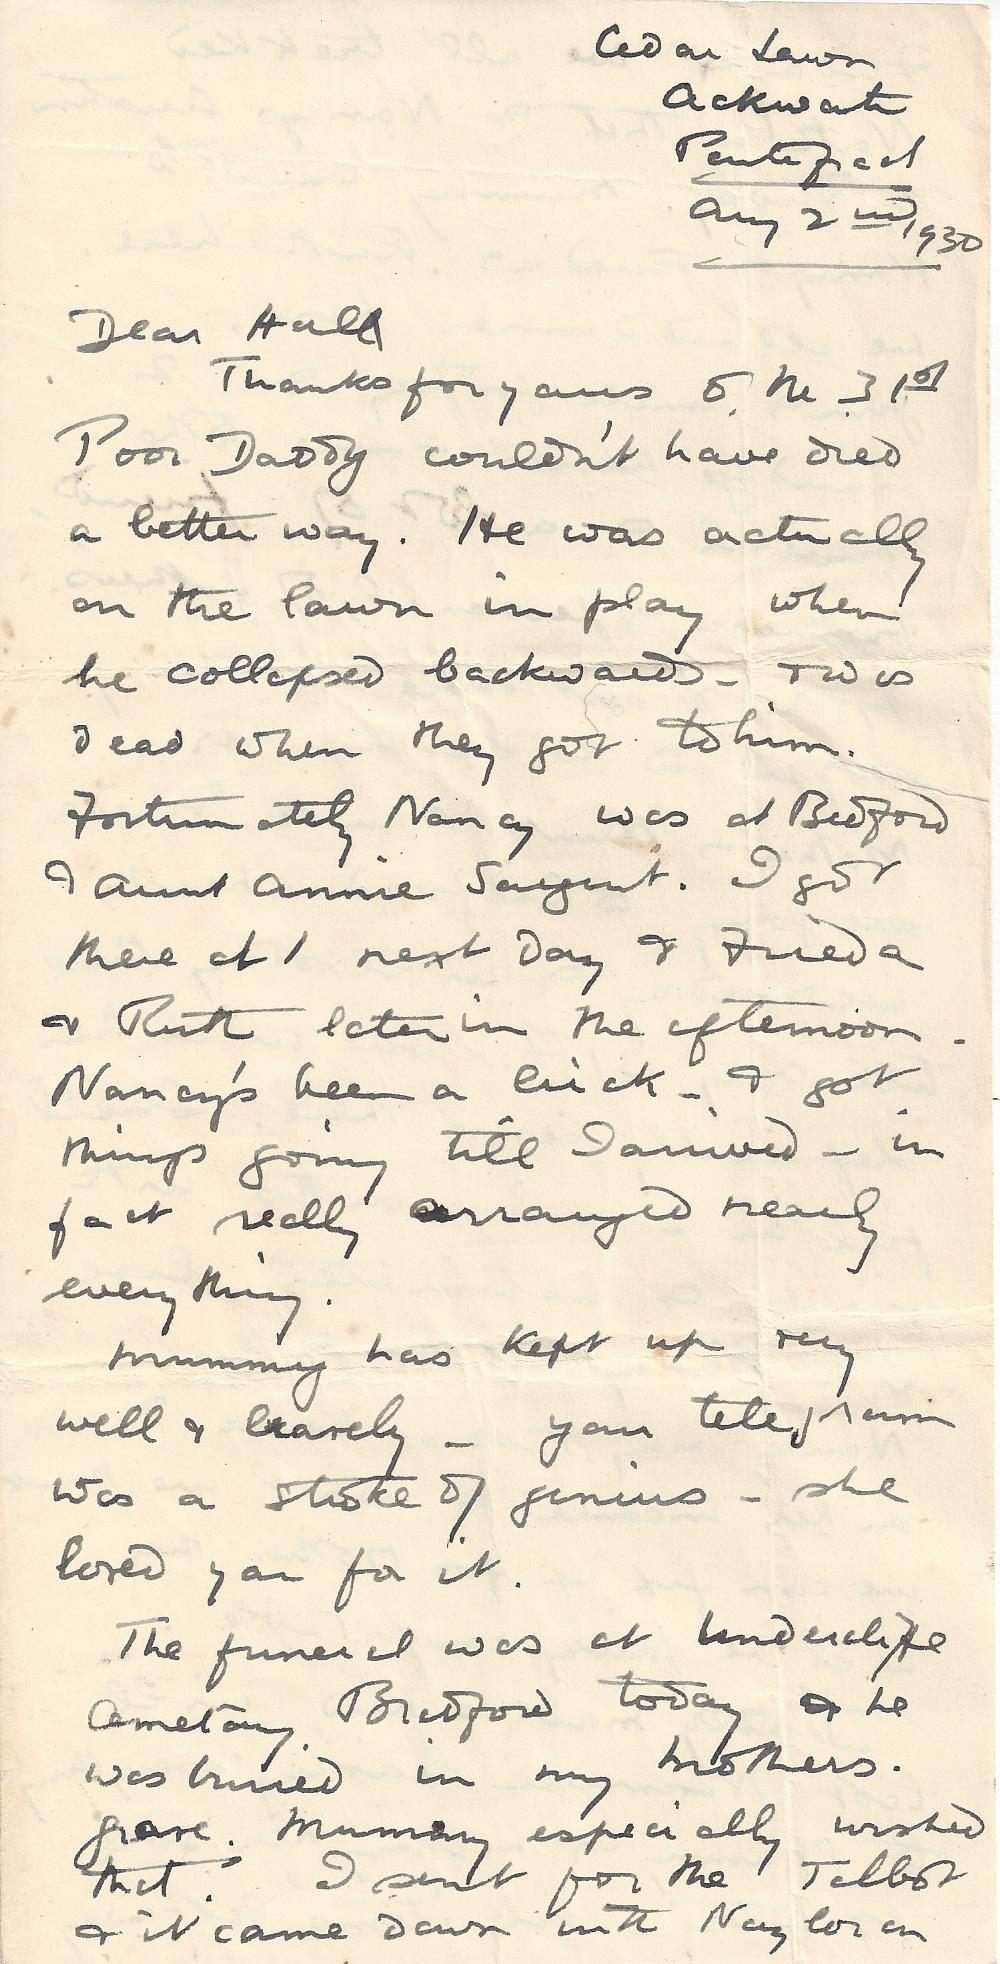 Cedar Lawn
Ackworth
Pontefract
Aug 2nd 1930
Dear Hall
Thanks for yours of the 31st
Poor Daddy couldn't have died
a better way. He was actually
on the lawn in play when
he collapsed backwards - & was
dead when they got to him.
Fortunately Nancy was at Bedford
& Aunt Annie Sargent. I got
there at 1 next day & Frieda
& Ruth later in the afternoon.
Nancy's been a brick - & got
things going till I arrived - in
fact really arranged nearly
everything.
Mummy has kept up very
well & bravely - your telegram
was a stroke of genius - she
loved you for it.
The funeral was at Undercliffe
Cemetary, Bradford today & he
was buried in my mothers.
grave. Mummy especially wished
that. I sent for the Talbot
& it came down with Naylor on